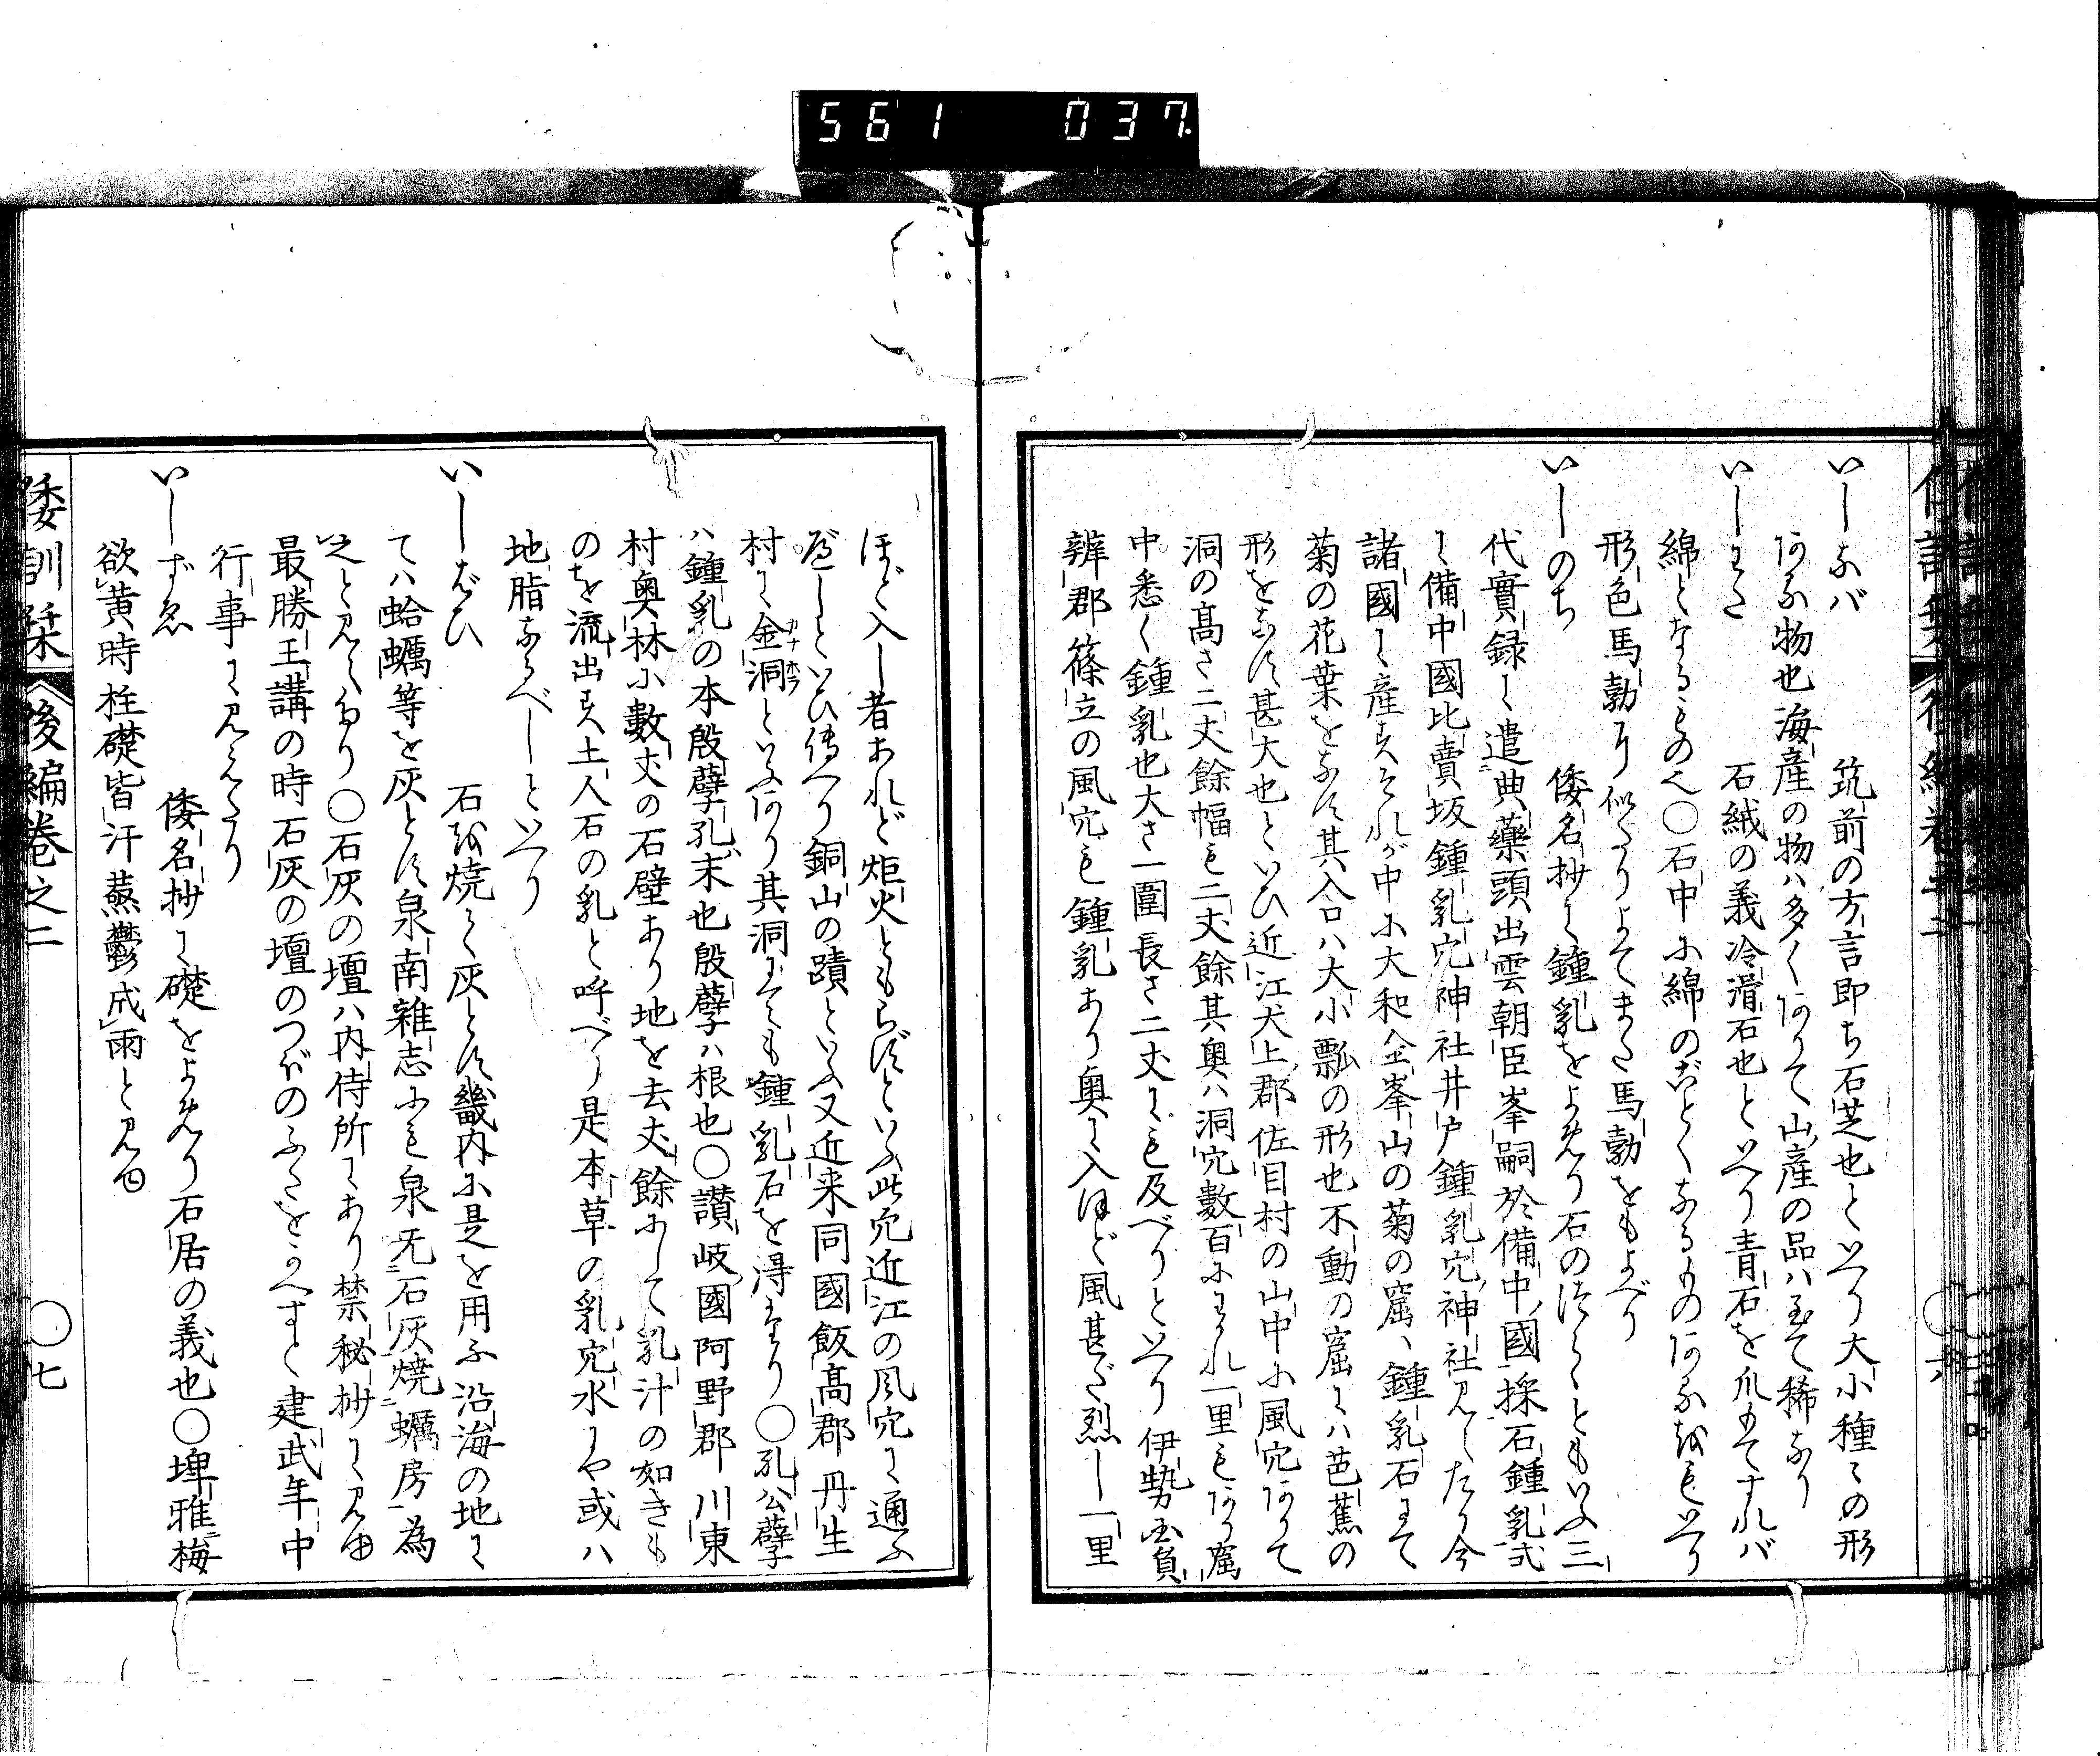 561 037
いしふバ 筑前の方言即ち石芝也といへり大小種々の形
ある物也海産の物ハ多くありて山産の品ハ至て稀なり
いしわた 石絨の義冷滑石也といへり青石を爪もてすれバ
綿となるものへ〇石中に綿のごとくなるものあるをもいへり
形色馬勃に似たりよてまた馬勃をもよべり
いしのち 倭名抄に鍾乳をよめり石のつらゝともいふ三
代實録に遣典藥頭出雲朝臣峯嗣於備中國採石鍾乳式
に備中國比賣坂鍾乳穴神社井戸鍾乳穴神社見えたり今
諸國に産すそれが中に大和金峯山の菊の窟ハ鍾乳石にて
菊の花葉をなす其入口ハ大小瓢の形也不動の窟にハ芭蕉の
形をなす甚大也といひ近江犬上郡佐目村の山中に風穴ありて
洞の髙さ二丈餘幅も二丈餘其奥ハ洞穴數百にわかれ一里もあり窟
中悉く鍾乳也大さ一圍長さ二丈にも及べりといへり伊勢國員
辨郡篠立の風穴も鍾乳あり奥に入ほど風甚だ烈し一里
ほど入し者あれど炬火ともらずといふ此穴近江の風穴に通ふ
べしといひ傳へり銅山の蹟といふ又近来同國飯髙郡丹生
村に金洞といふあり其洞にても鍾乳石を得るなり〇孔公孽
ハ鍾乳の本殷孽孔末也殷孽ハ根也〇讃岐國阿野郡川東
村奥林に數丈の石壁あり地を去丈餘にして乳汁の如きも
のを流出す土人石の乳と呼べり是本草の乳穴水にや或ハ
地脂なるべしといへり
いしばひ 石を焼て灰とす畿内に是を用ふ沿海の地に
てハ蛤蠣等を灰とす泉南雜志にも泉无石灰焼蠣房為
之と見えたり〇石灰の壇ハ内侍所にあり禁秘抄に見ゆ
最勝王講の時石灰の壇のつぼのふたをかへすと建武年中
行事に見えたり
いしずゑ 倭名抄に礎をよめり石居の義也〇埤雅梅
欲黄時柱礎皆汗蒸鬱成雨と見ゆ
倭訓栞 後編巻之二 〇七